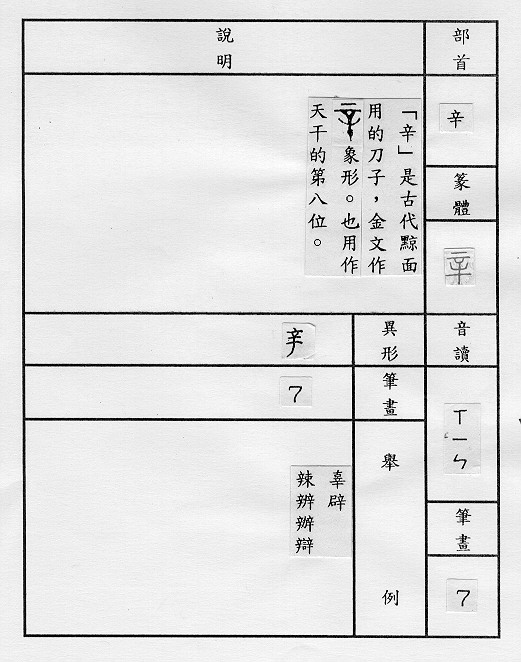 部首
辛
篆體
音讀
ㄒㄧㄣ
筆畫
7
說明
「辛」是古代黥面
用的刀子,金文作
象形。也用作
天干的第八位。
異形
筆畫
7
舉例
辜辟
辣辨辦辯